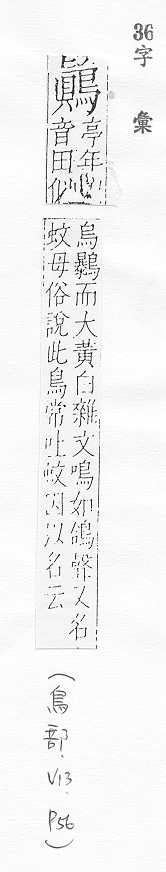 36 字彙
鷏
亭年切
音田似
烏鷃而大黃白雜文鳴如鴿聲又名
蚊母俗說此鳥常吐蚊因以名云
(鳥部.V13.P56)